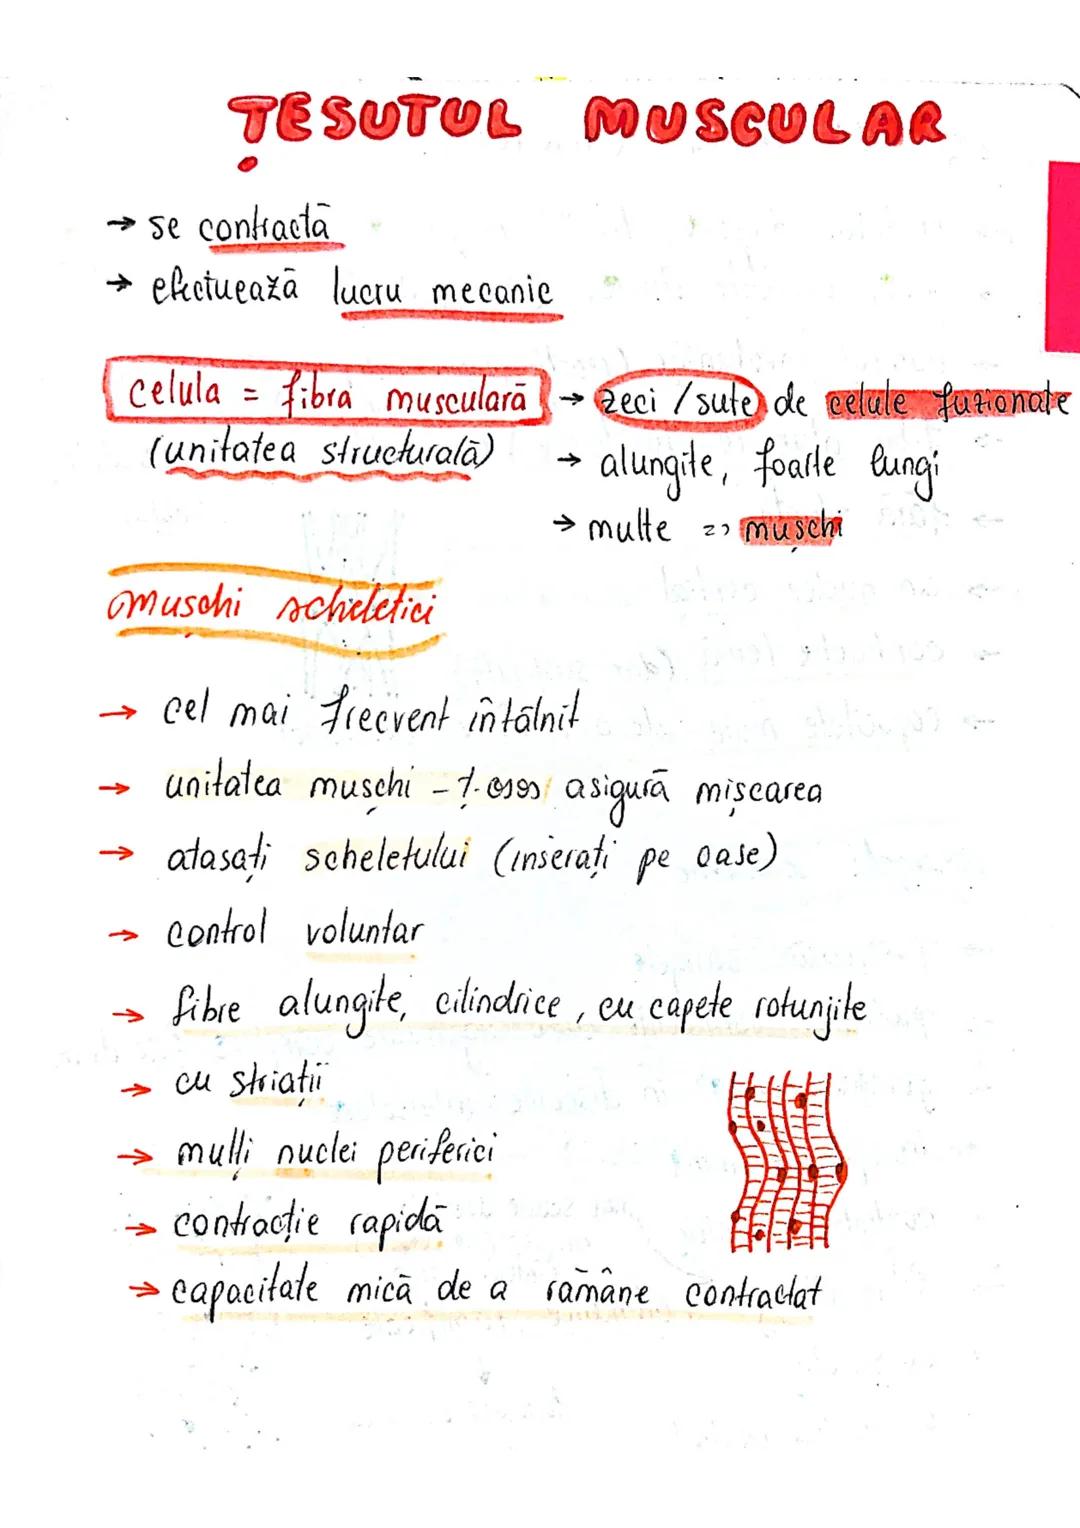 ȚESUTUL MUSCULAR
→ se contractă
→ efectuează lucru mecanic
celula = fibra musculară → zeci / sute de celule fuzionate
(unitatea structurală) → alungite, foarte lungi
→ multe => mușchi
mușchi scheletici
→ cel mai frecvent întâlnit
→ unitatea mușchi - ț. osos asigură mișcarea
→ atasați scheletului (inserați pe oase)
→ control voluntar
→ fibre alungite, cilindrice, cu capete rotunjite
→ cu striații
→ mulți nuclei periferici
→ contracție rapidă
→ capacitate mică de a rămâne contractat